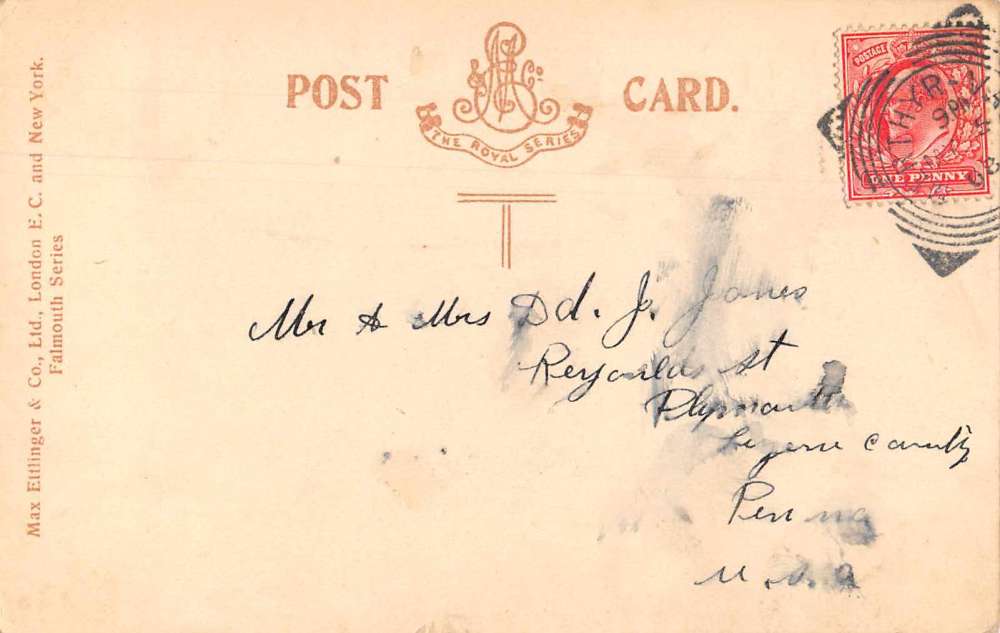 POST CARD.
& Co.
THE ROYAL SERIES
Max Ettlinger & Co., Ltd., London E. C. and New York.
Falmouth Series
POSTAGE
ONE PENNY
THYR
9 PM
08
Mr & Mrs Dd. J. Jones
Reynolds st
Plymouth
Luzerne County
Penna
U.S.A